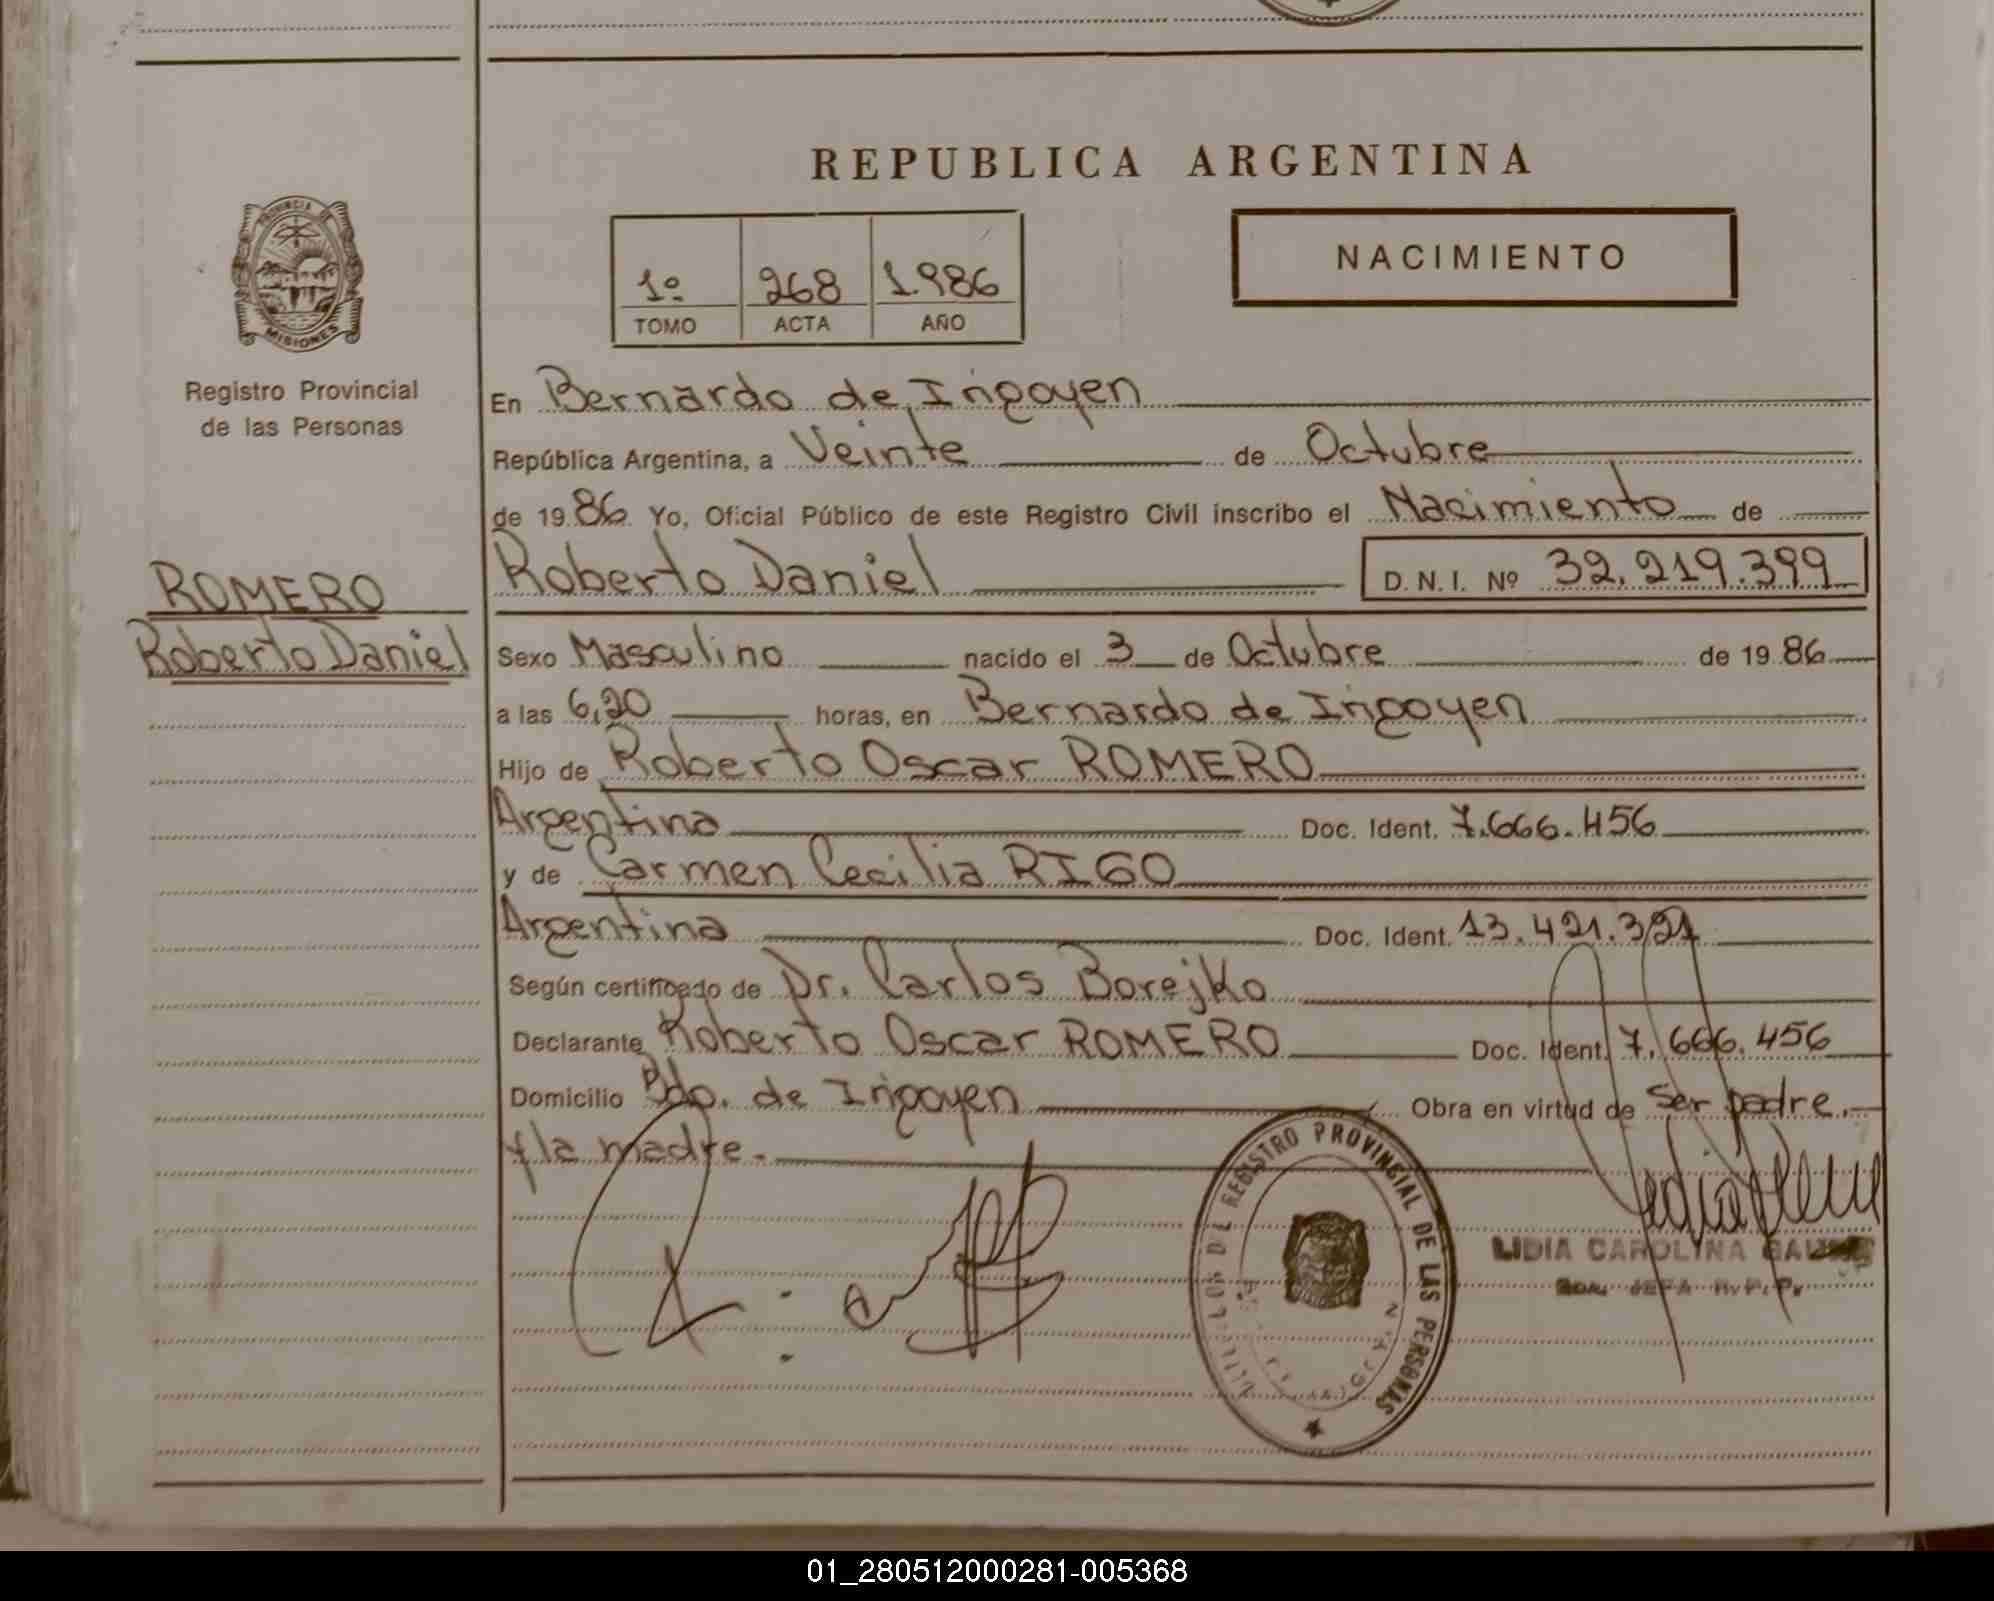 REPUBLICA ARGENTINA
PROVINCIA DE
MISIONES
Registro Provincial
de las Personas
1º 268 1.986
TOMO ACTA AÑO
NACIMIENTO
En Bernardo de Irigoyen
República Argentina, a Veinte de Octubre
de 1986 Yo, Oficial Público de este Registro Civil inscribo el Nacimiento de
ROMERO
Roberto Daniel
Roberto Daniel D.N.I. Nº 32.219.399
Sexo Masculino nacido el 3 de Octubre de 1986
a las 6,20 horas, en Bernardo de Irigoyen
Hijo de Roberto Oscar ROMERO
Argentina Doc. Ident. 7.666.456
y de Carmen Cecilia RIGO
Argentina Doc. Ident. 13.421.321
Según certificado de Dr. Carlos Borejko
Declarante Roberto Oscar ROMERO Doc. Ident. 7.666.456
Domicilio Bdo. de Irigoyen Obra en virtud de ser padre.
y la madre.
DEL REGISTRO PROVINCIAL DE LAS PERSONAS
LIDIA CAROLINA
JEFA R.P.P.
01_280512000281-005368